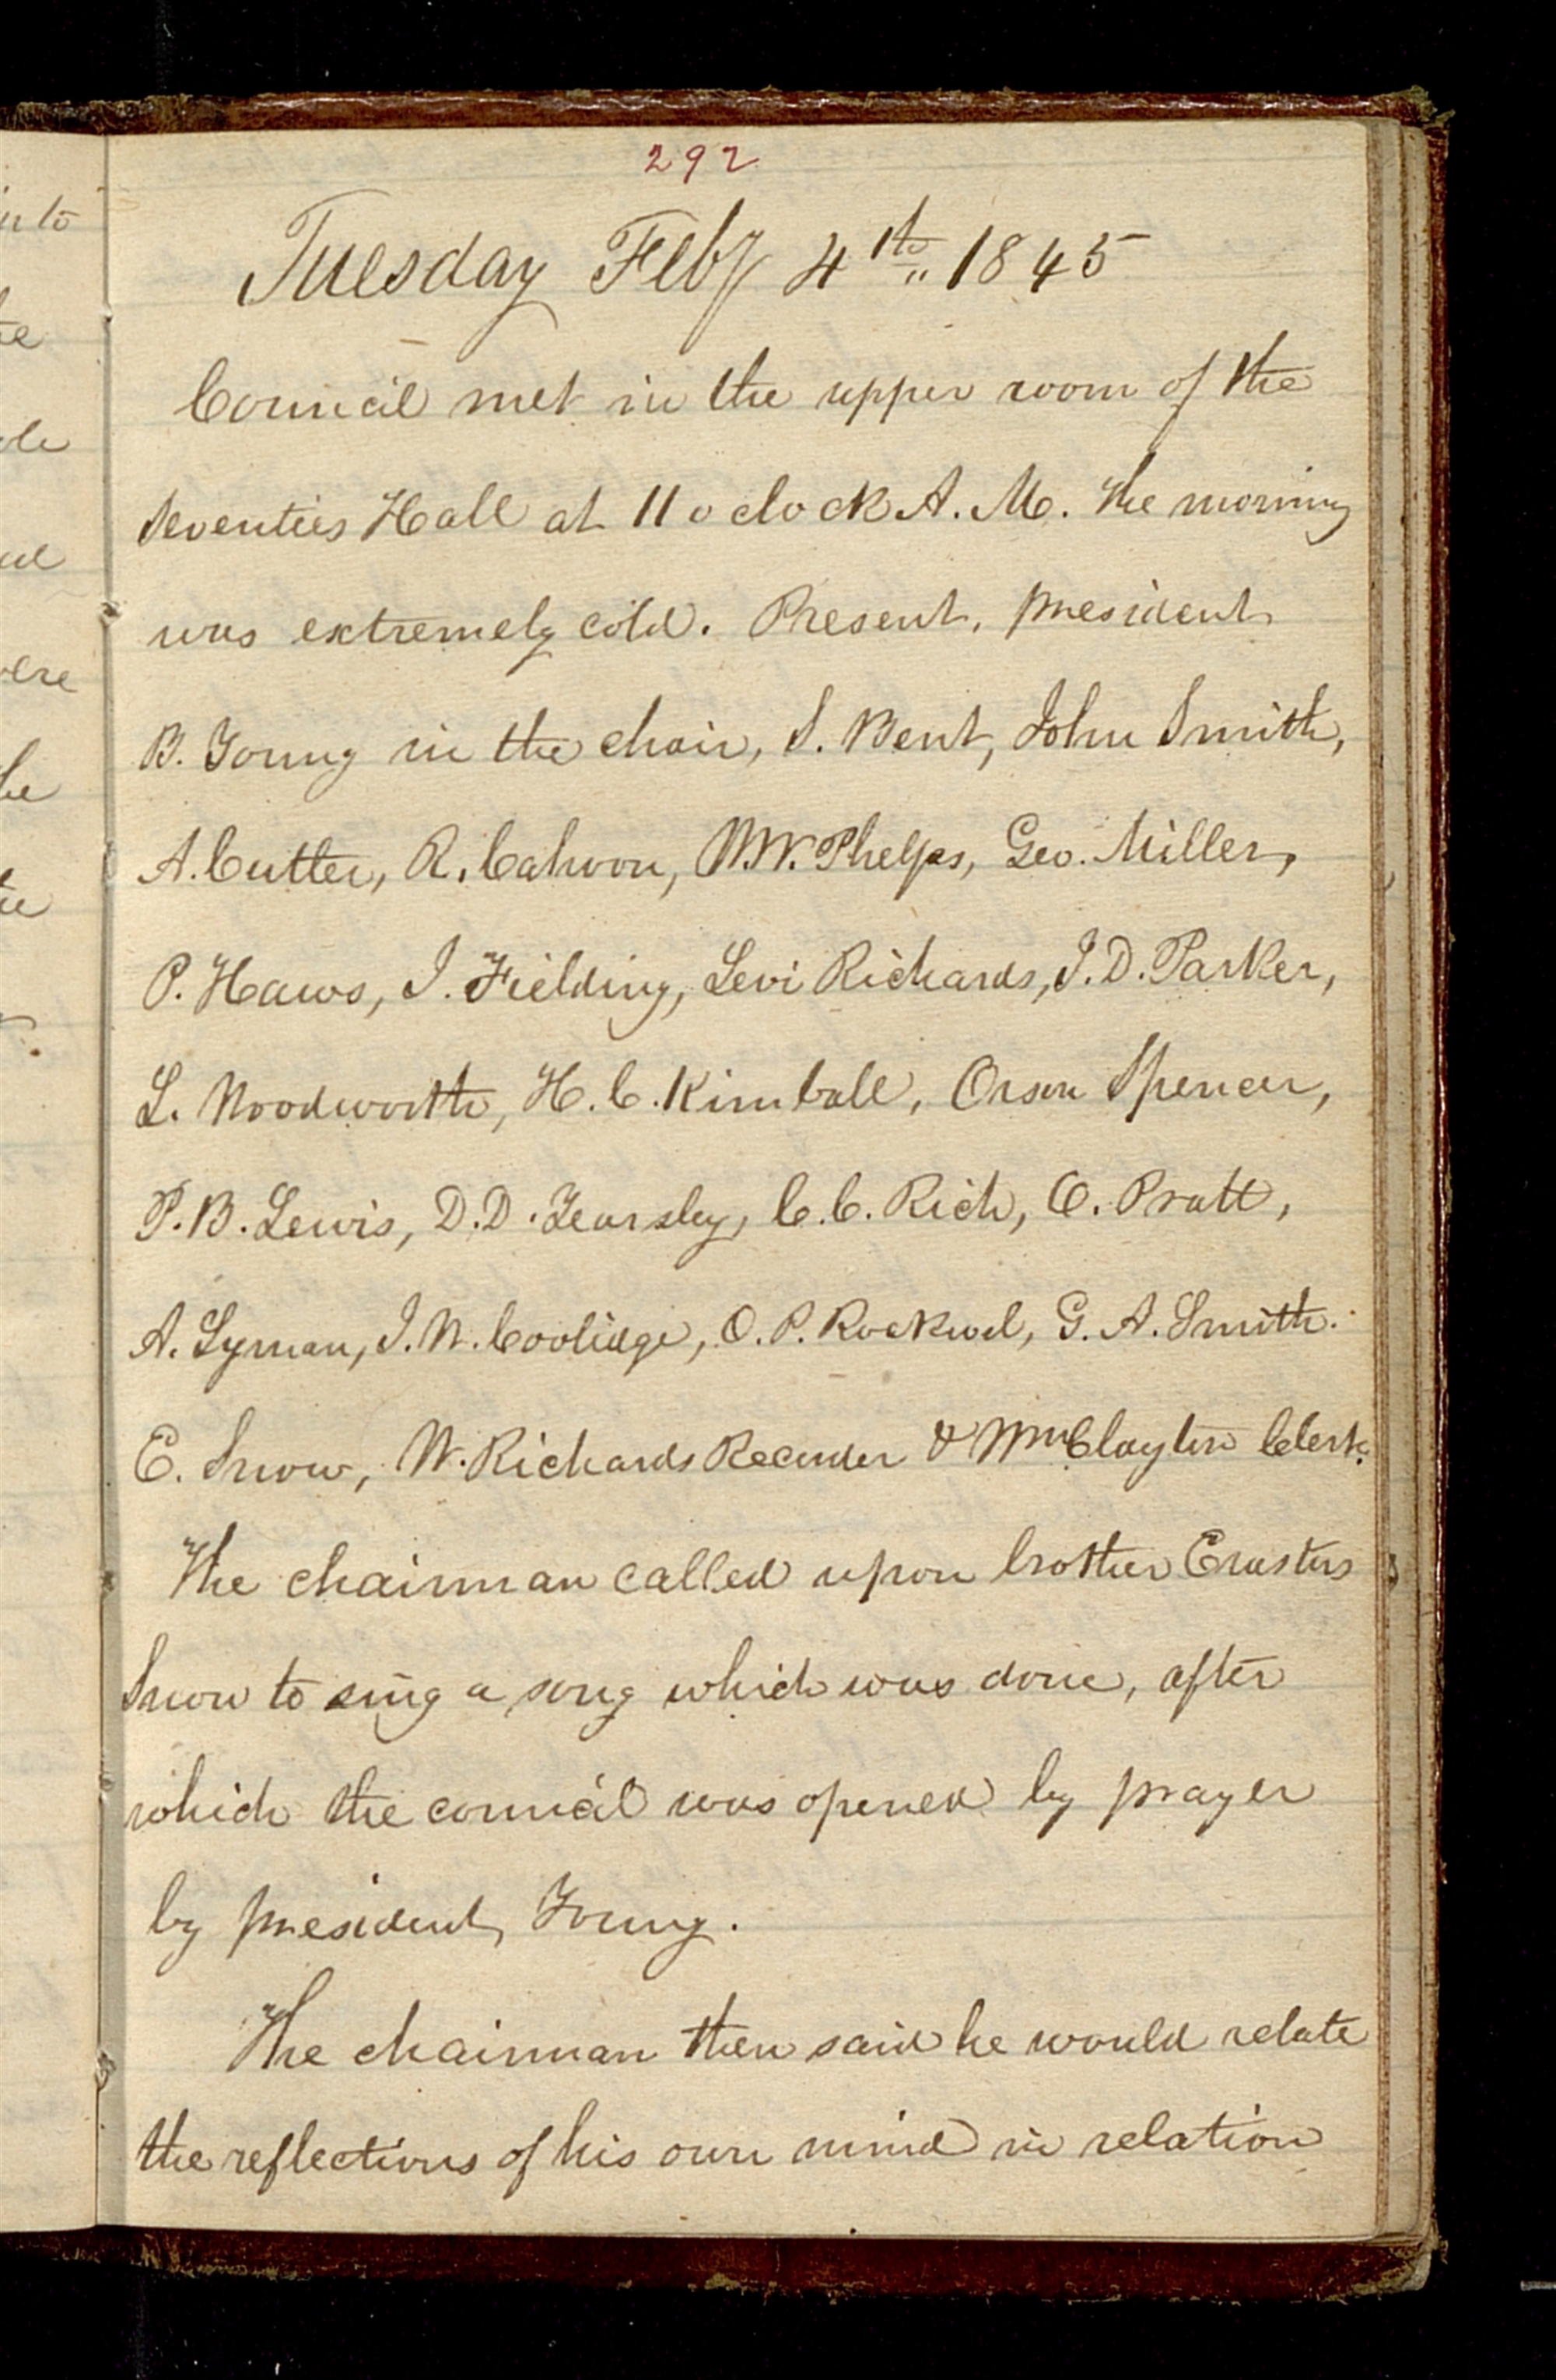 292
Tuesday Feby 4th 1845
Council met in the upper room of the
Seventies Hall at 11 o clock A. M. The morning
was extremely cold. Present, president
B. Young in the chair, S. Bent, John Smith,
A. Cutler, R. Cahoon, W. W. Phelps, Geo. Miller,
P. Haws, J. Fielding, Levi Richards, J. D. Parker,
L. Woodworth, H. C. Kimball, Orson Spencer,
P. B. Lewis, D. D. Yearsley, C. C. Rich, O. Pratt,
A. Lyman, J. W. Coolidge, O. P. Rockwel, G. A. Smith.
E. Snow, W. Richards Recorder & Wm Clayton Clerk.
The chairman called upon brother Erastus
Snow to sing a song which was done, after
which the council was opened by prayer
by president Young.
The chairman then said he would relate
the reflections of his own mind in relation